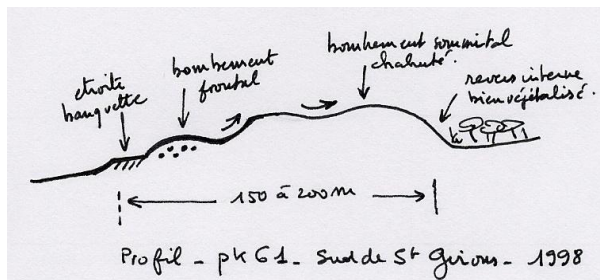 étroite
banquette
bombement
frontal
bombement sommital
chahuté.
revers interne
bien végétalisé.
150 à 200 m
Profil - pk 61 - Sud de St Girons - 1998